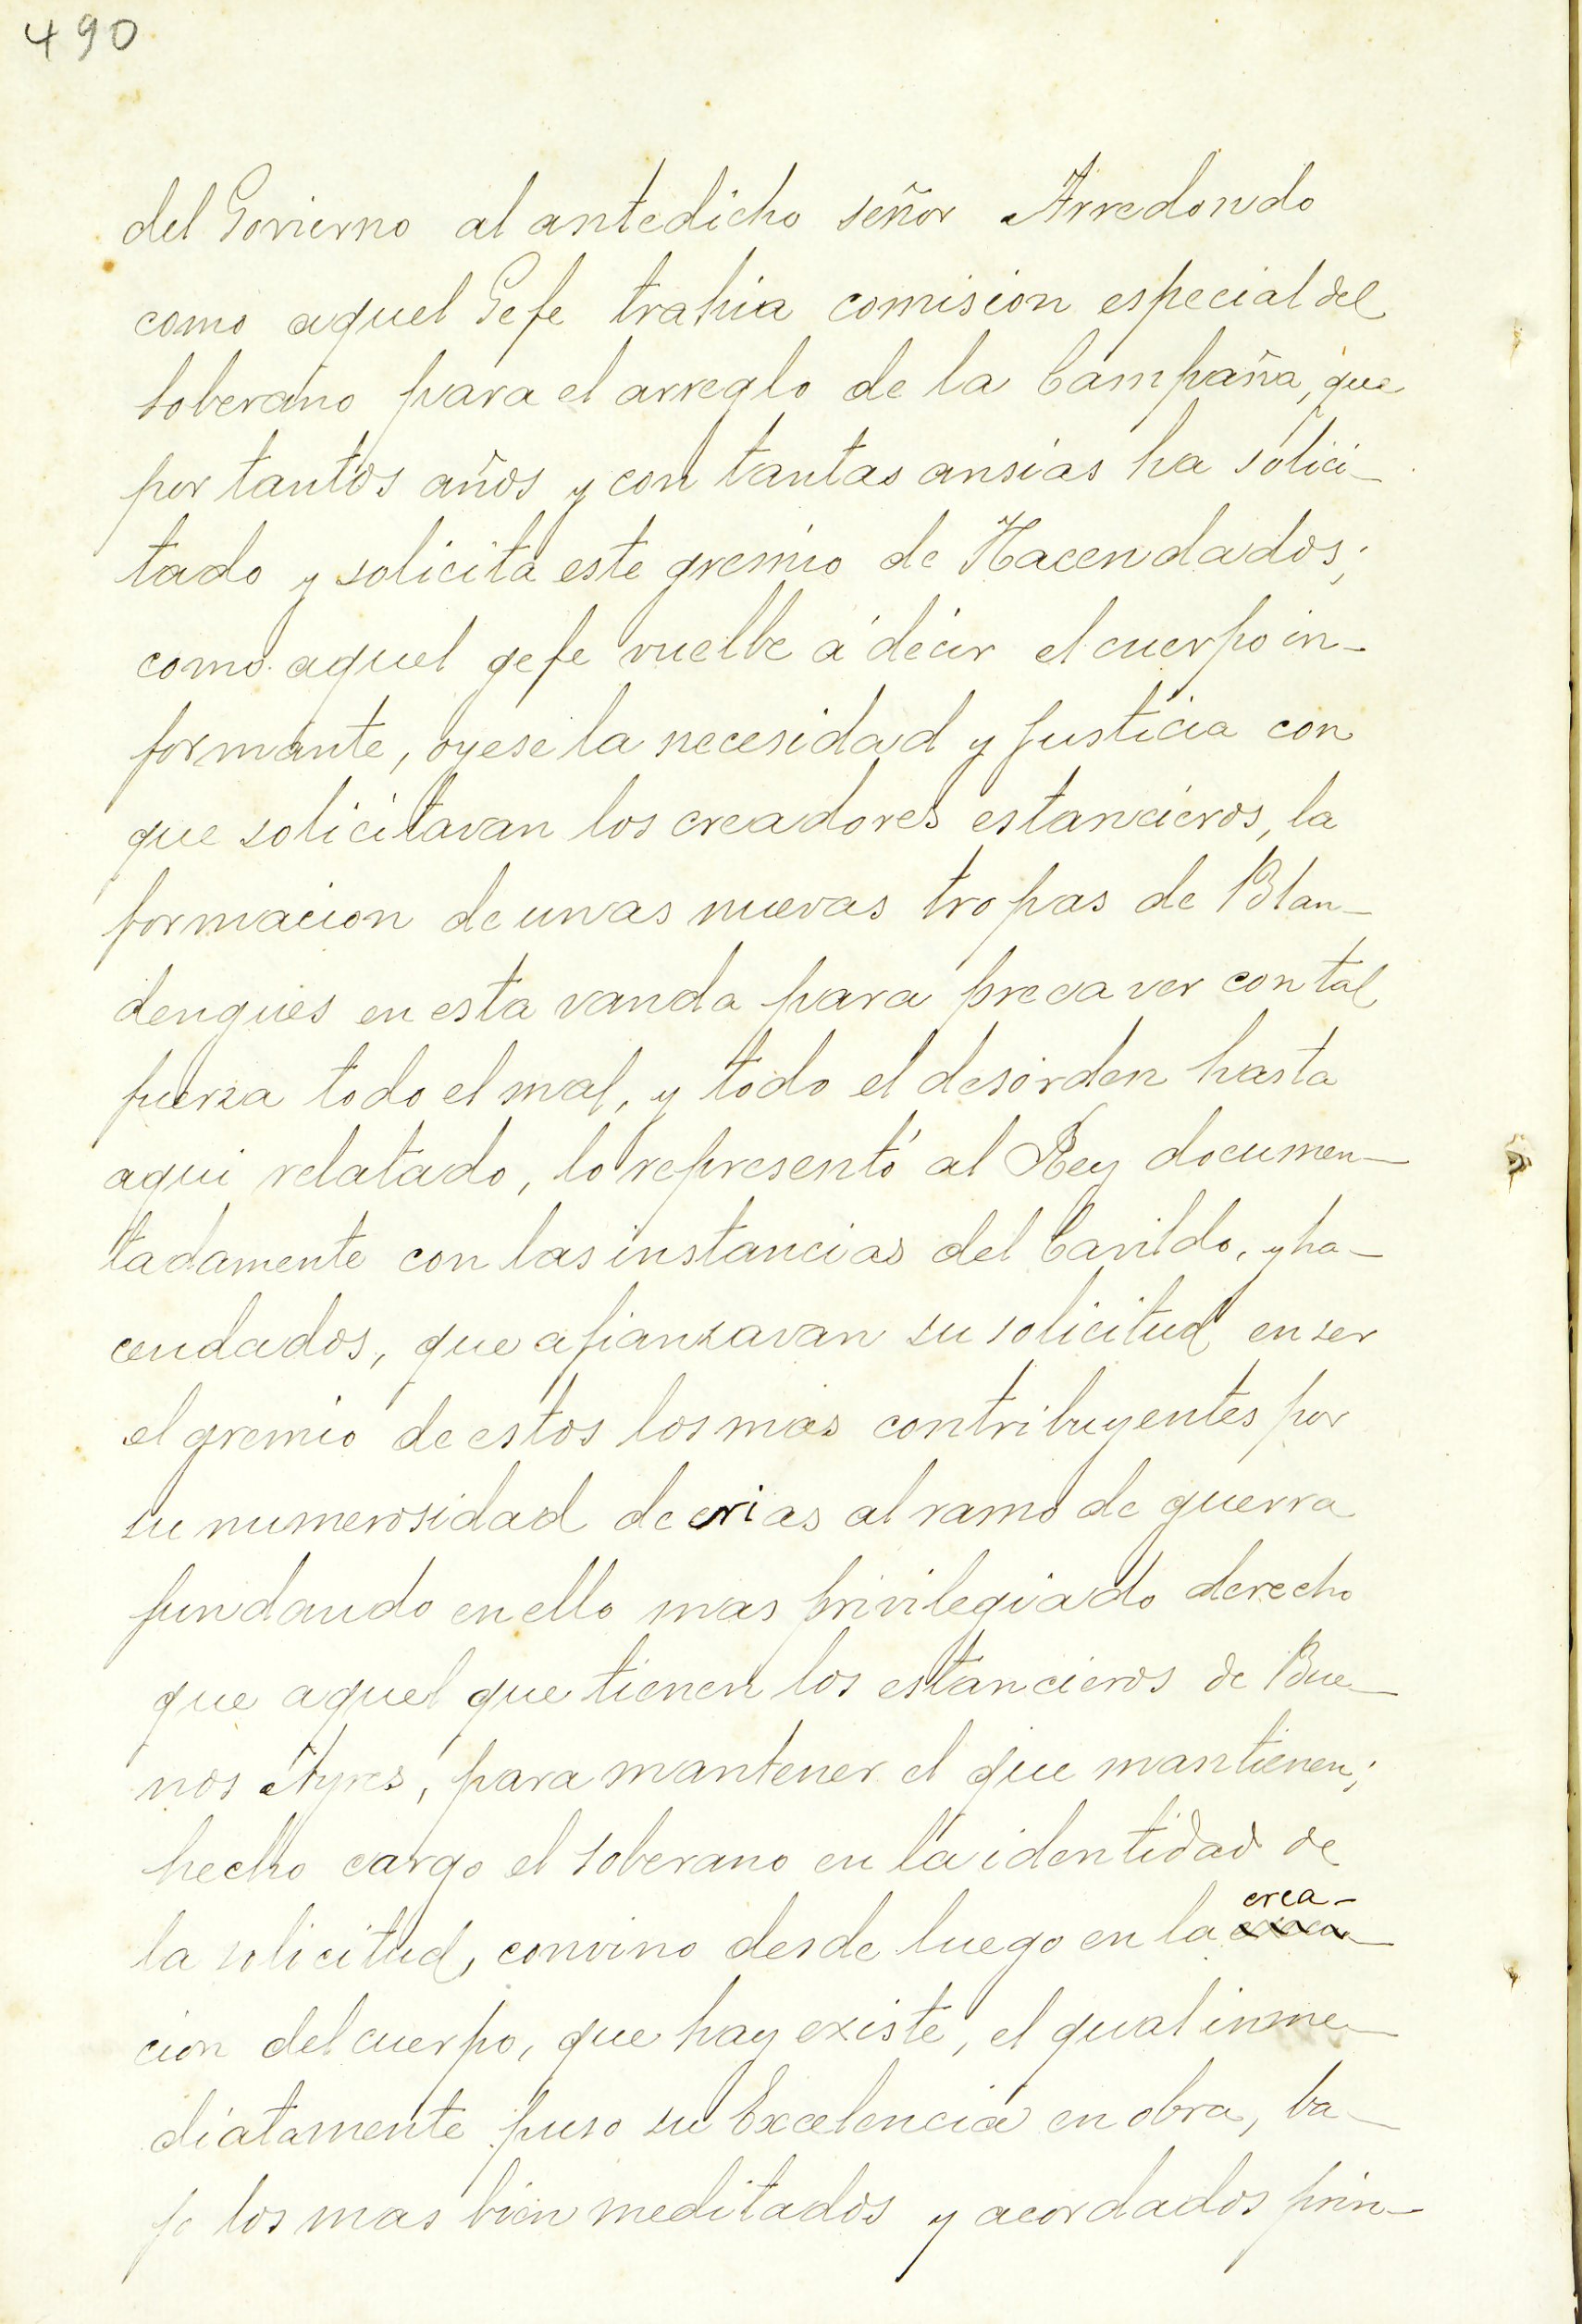 490
del Govierno al antedicho señor Arredondo
como aquel Gefe trahia comision especial del
soberano para el arreglo de la Campaña, que
por tantos años y con tantas ansias ha solici-
tado y solicita este gremio de Hacendados;
como aquel gefe vuelbe á decir el cuerpo in-
formante, oyese la necesidad y justicia con
que solicitavan los creadores estancieros, la
formacion de unas nuevas tropas de Blan-
dengues en esta vanda para precaver con tal
fuerza todo el mal, y todo el desorden hasta
aqui relatado, lo representó al Rey documen-
tadamente con las instancias del Cavildo, y ha-
cendados, que afianzavan su solicitud en ser
el gremio de estos los mas contribuyentes por
su numerosidad de crias al ramo de guerra
fundando en ello mas privilegiado derecho
que aquel que tienen los estancieros de Bue-
nos Ayres, para mantener el que mantienen;
hecho cargo el soberano en la identidad de
la solicitud, convino desde luego en la crea-
cion del cuerpo, que hay existe, el qual inme-
diatamente puso su Excelencia en obra, ba-
jo los mas bien meditados y acordados prin-